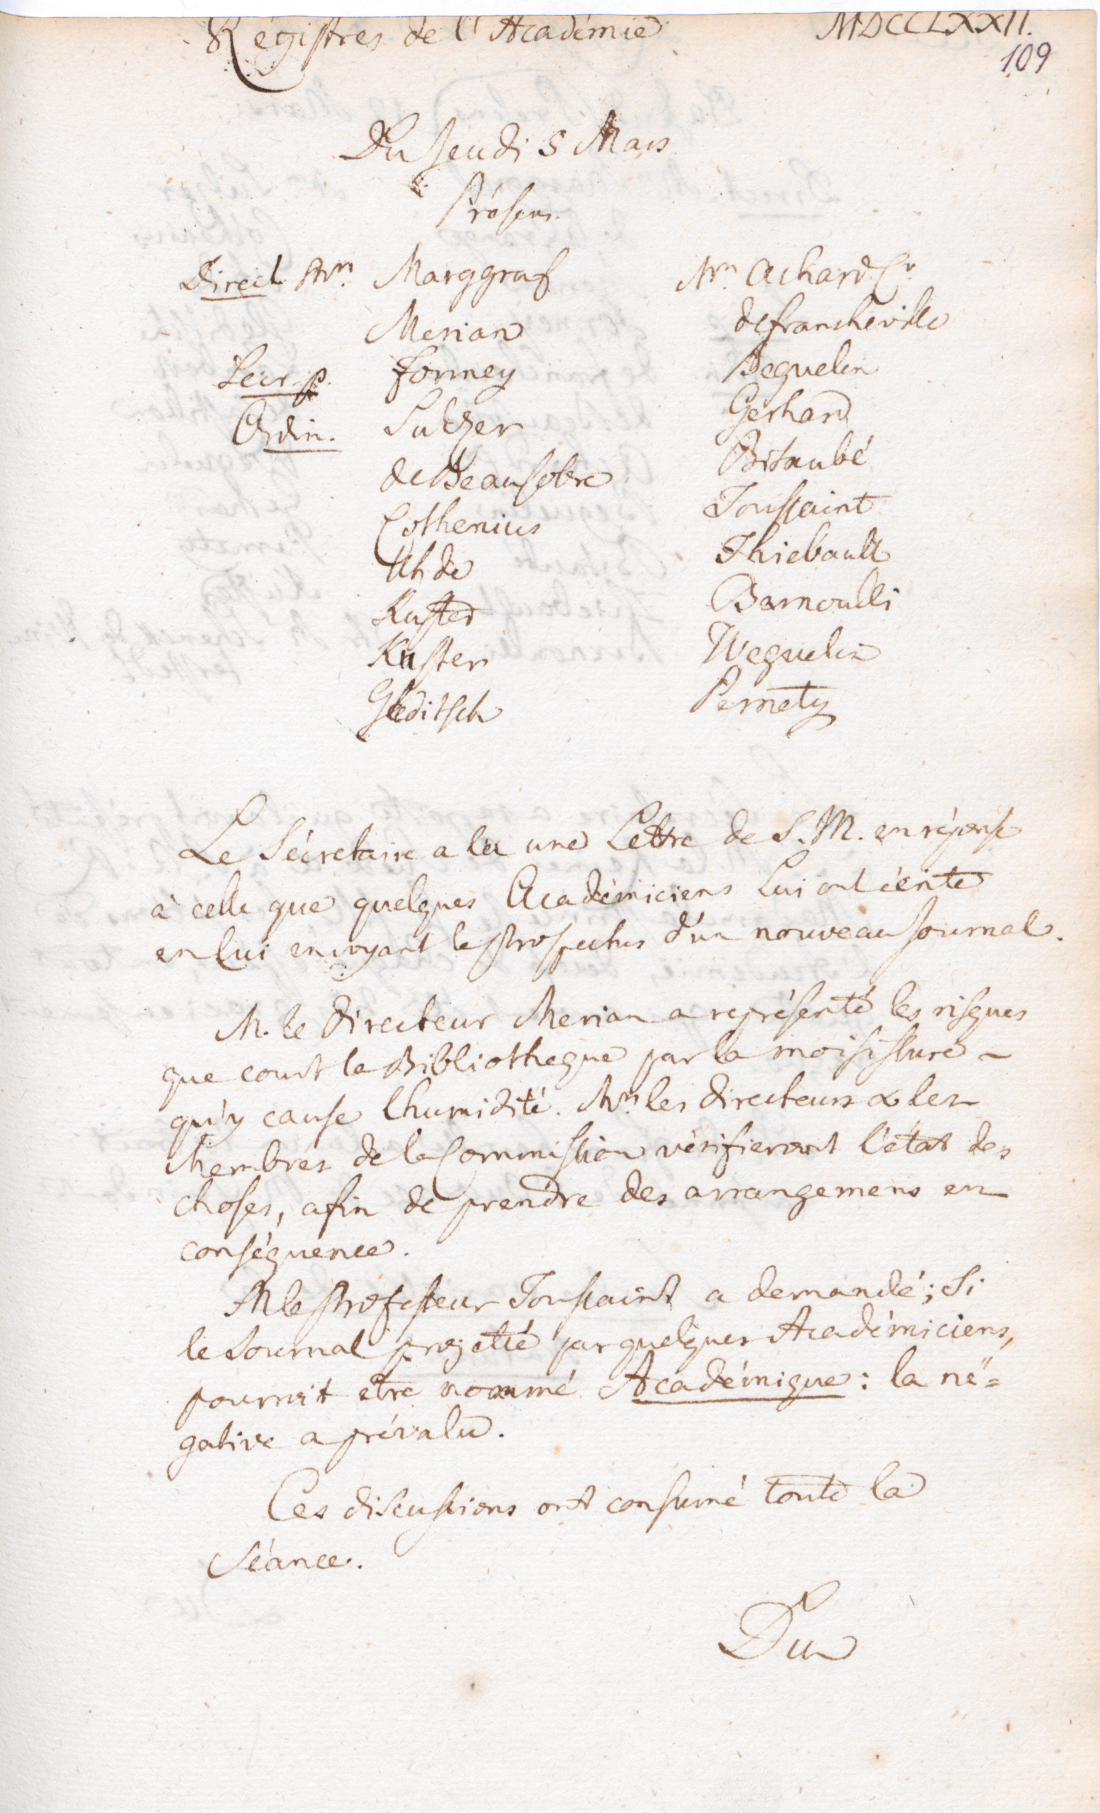 Régistres de l'Académie MDCCLXXII.
109
Du Jeudi 5 Mars
Présens.
Direct. Mrs. Marggraf
Merian
Secr. p. Formey
Ordin. Sulzer
de Beausobre
Cothenius
Uhde
Kuster
Kuster
Gleditsch
Mrs. Achard Cr
de francheville
Beguelin
Gerhard
Bitaubé
Toussaint
Thiebault
Bernoulli
Weguelin
Pernety
Le Sécretaire a lu une Lettre de S. M. en réponse
à celle que quelques Académiciens Lui ont écrite
en Lui envoyant le Prospectus d'un nouveau Journal.
M. le Directeur Merian a représenté les risques
que court la Bibliotheque par la moisissure
qu'y cause l'humidité. Mrs. les Directeurs & les
Membres de la Commission vérifieront l'état des
choses, afin de prendre des arrangemens en
conséquence.
M. le Professeur Toussaint a demandé; Si
le Journal projetté par quelques Académiciens,
pourroit etre nommé Académique: la né=
gative a prévalu.
Ces discussions ont consumé toute la
Séance.
Du